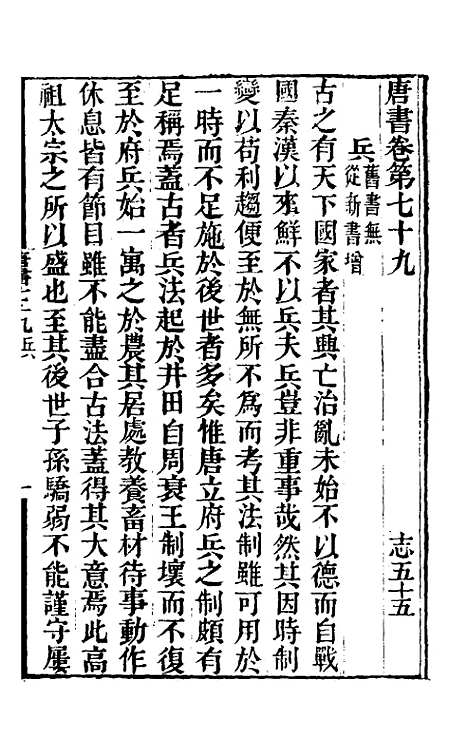 唐書卷第七十九　志五十五
兵 舊書無從新書增
古之有天下國家者其興亡治亂未始不以德而自戰
國秦漢以來鮮不以兵夫兵豈非重事哉然其因時制
變以苟利趨便至於無所不爲而考其法制雖可用於
一時而不足施於後世者多矣惟唐立府兵之制頗有
足稱焉蓋古者兵法起於井田自周衰王制壞而不復
至於府兵始一寓之於農其居處教養畜材待事動作
休息皆有節目雖不能盡合古法蓋得其大意焉此高
祖太宗之所以盛也至其後世子孫驕弱不能謹守屢
唐書七十九兵　一